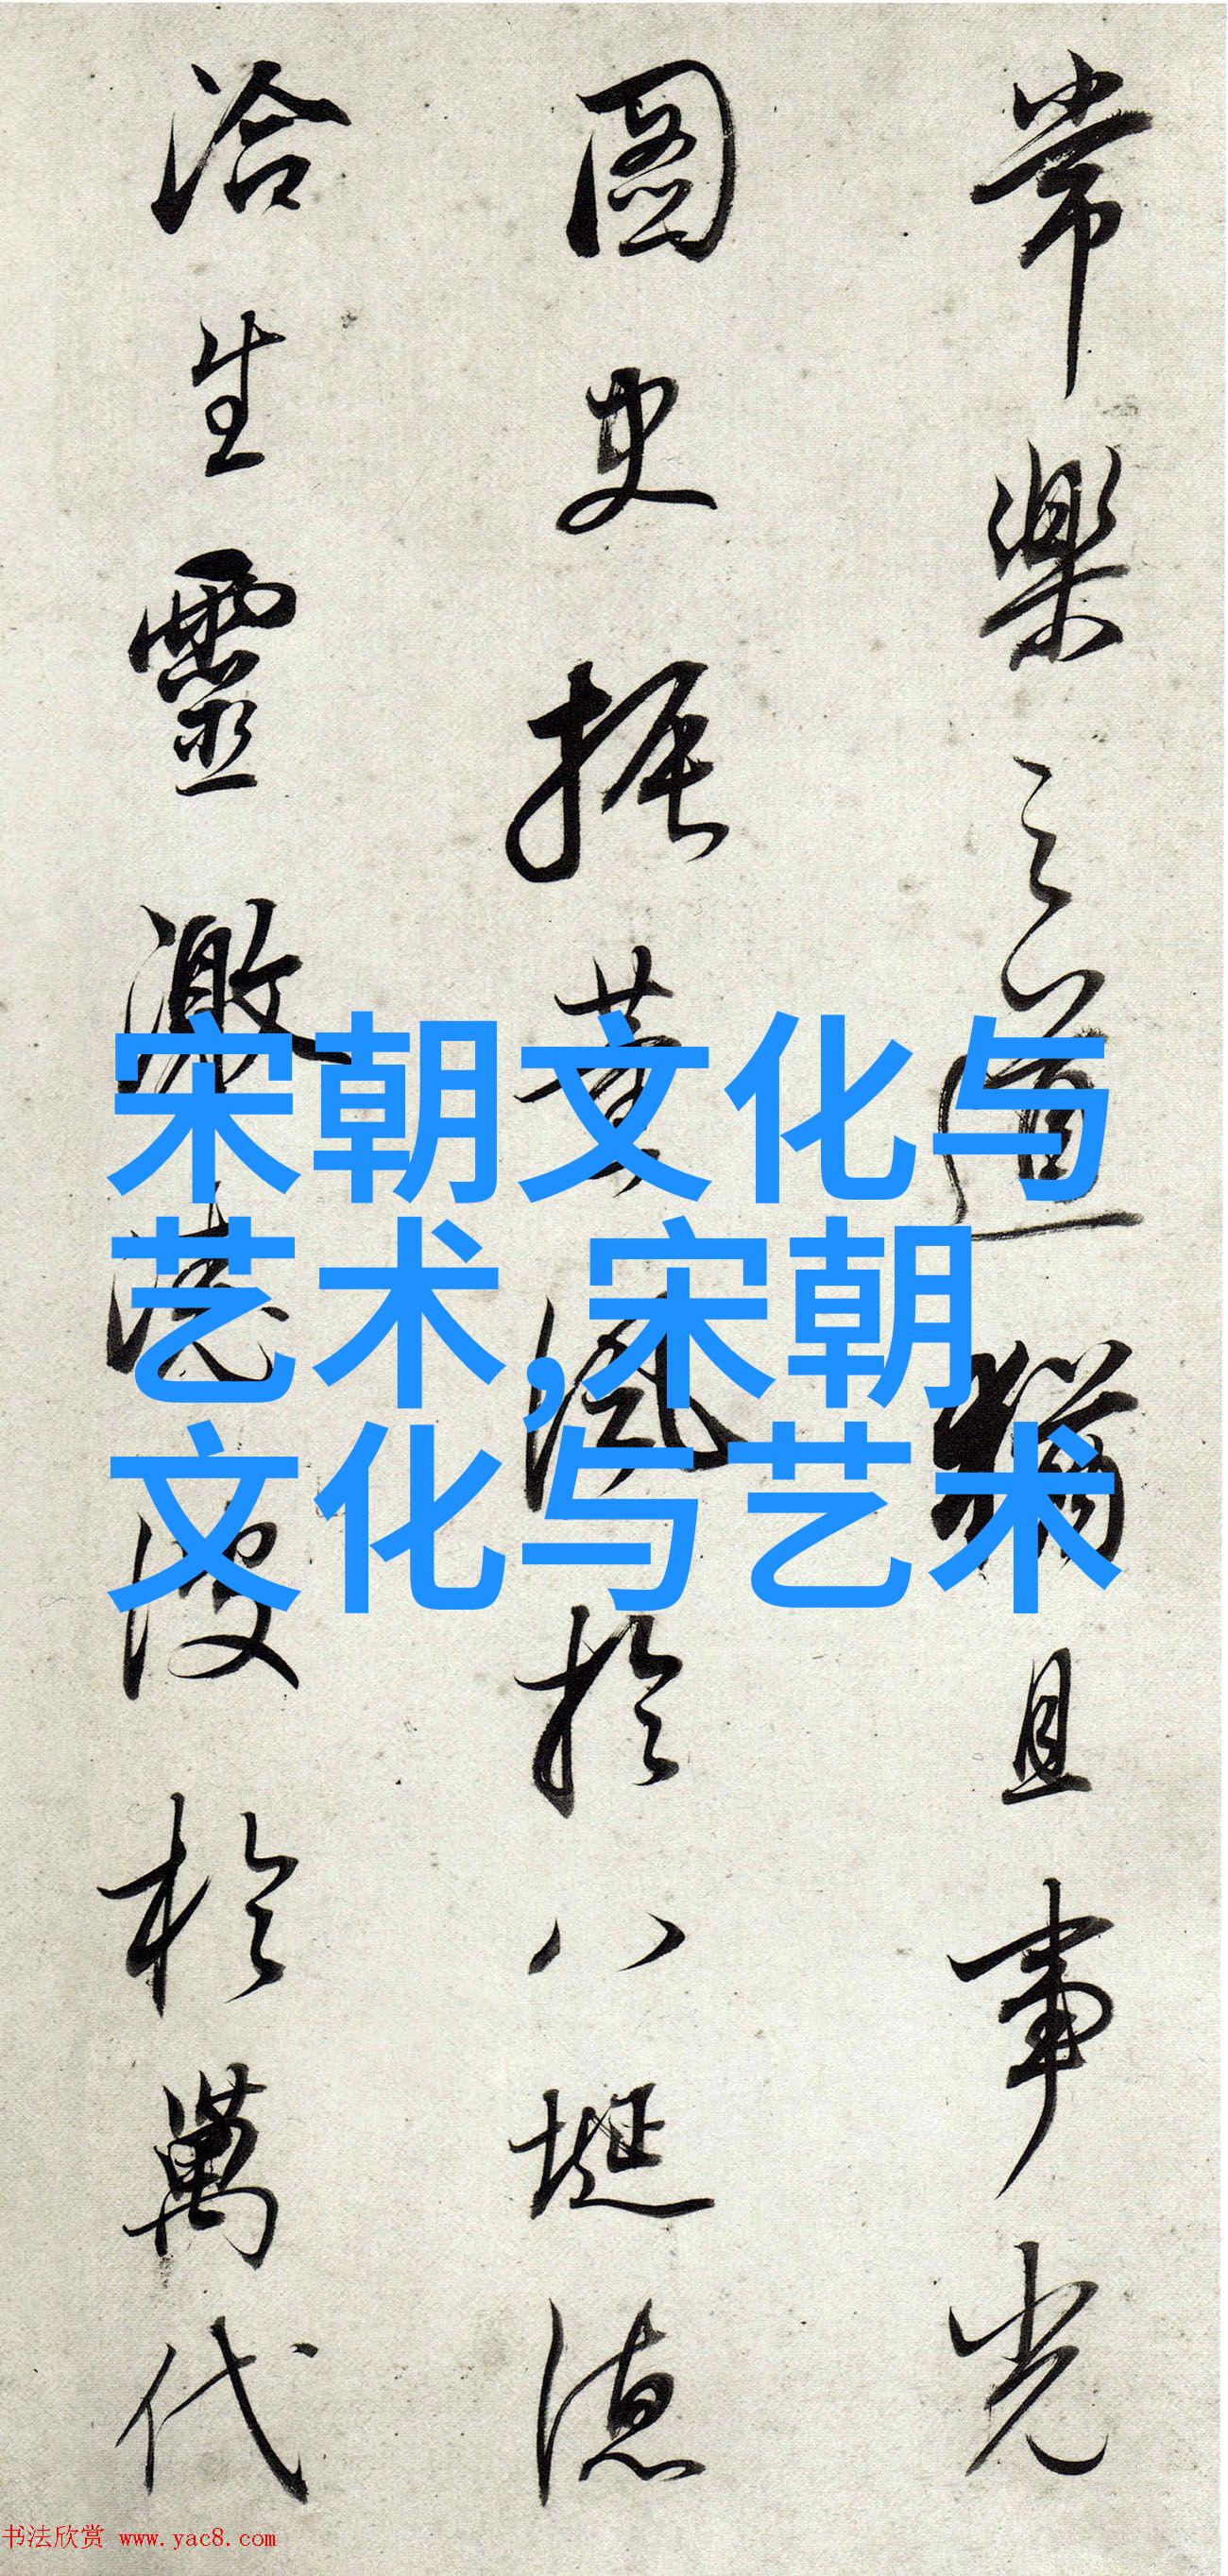 常樂之道猶且事光
圖史振英風於八埏德
洽生靈激流波於萬代
宋朝文化与
艺术,宋朝
文化与艺术
书法欣赏 www.yac8.com